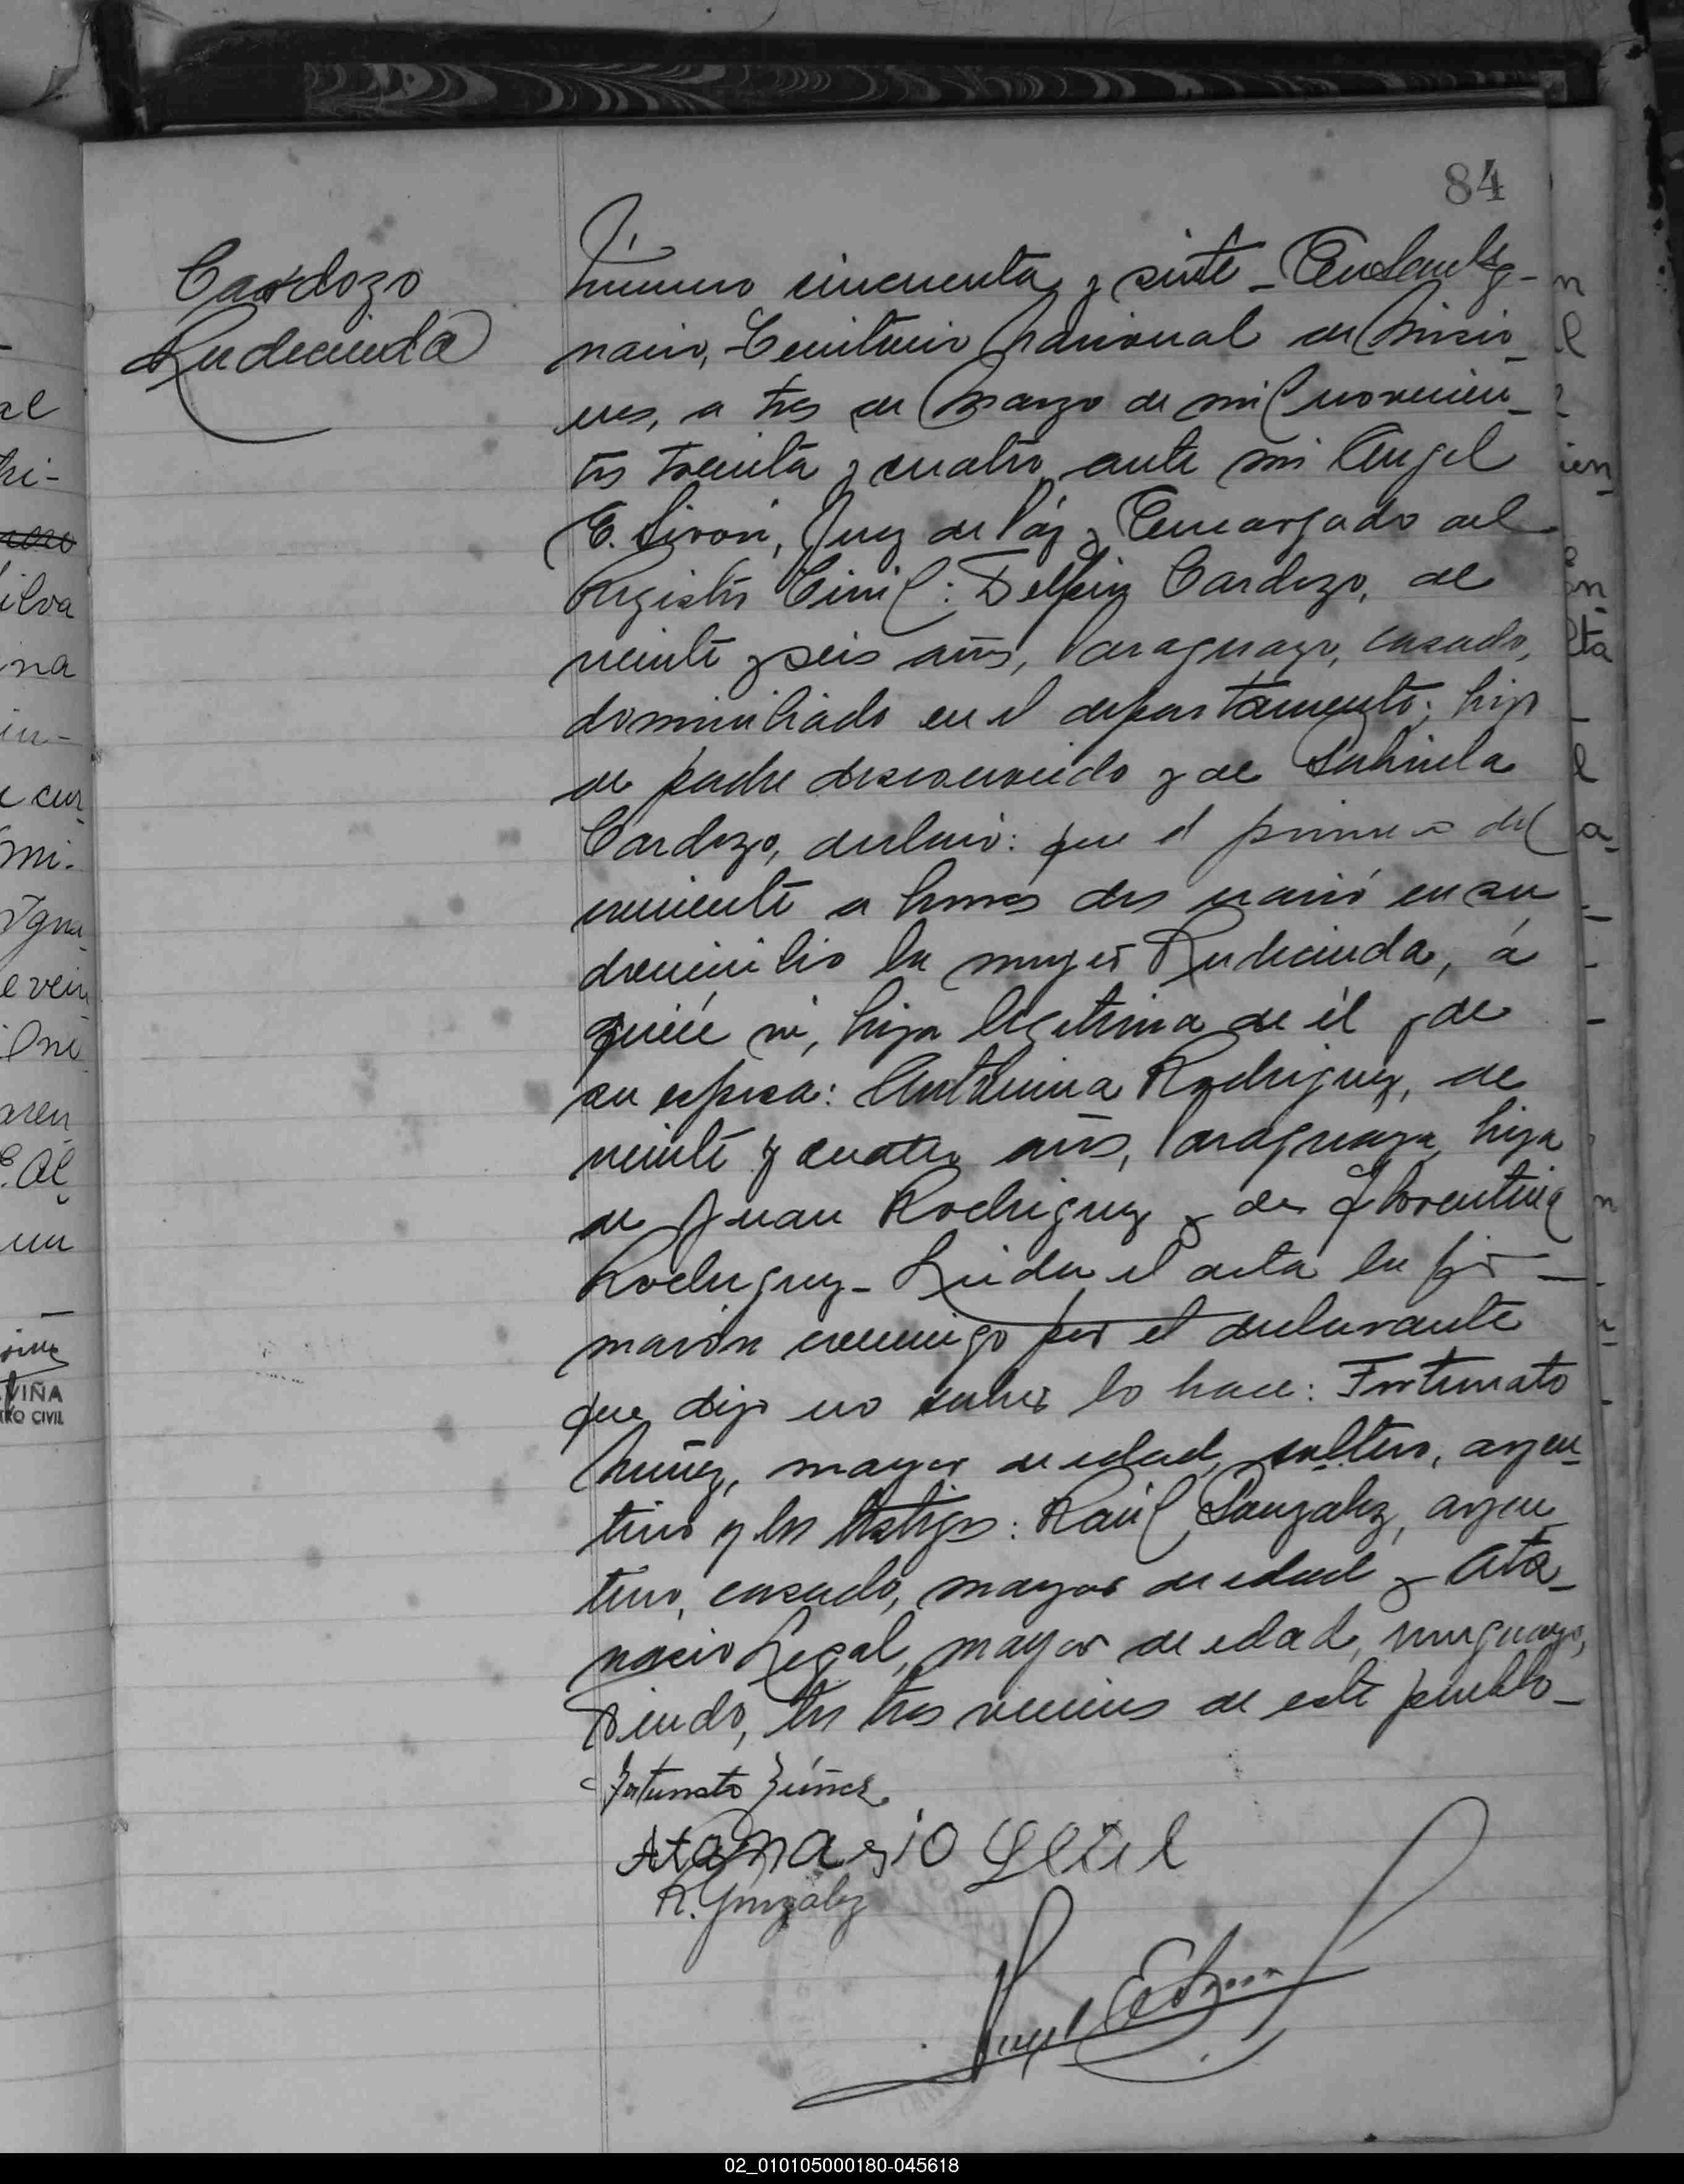 84
Cardozo
Rudecinda
Número cincuenta y siete - En San Ig-
nacio, Territorio Nacional de Misio-
nes, a tres de Marzo de mil novecien-
tos treinta y cuatro, ante mi Angel
E. Sivori, Juez de Páz y Encargado del
Registro Civil: Delfin Cardozo, de
veinte y seis años, Paraguayo, casado,
domiciliado en el departamento; hijo
de padre desconocido y de Gabriela
Cardozo, declaró: que el primero del
corriente a horas dos nació en su
domicilio la mujer Rudecinda, á
quien vi, hija legitima de él y de
su esposa: Antonina Rodriguez, de
veinte y cuatro años, Paraguaya, hija
de Juan Rodriguez y de Florentina
Rodriguez - Leida el acta la fir-
maron conmigo por el declarante
que dijo no saber lo hace: Fortunato
Nuñez, mayor de edad, soltero, argen-
tino y los testigos: Raúl Gonzalez, argen
tino, casado, mayor de edad y Ata-
nacio Legal, mayor de edad, uruguayo,
viudo, los tres vecinos de este pueblo -
Fortunato Núñez
Atanasio
R. González
Angel E.
al
hi-
ilva
na
in-
e cur
mi-
Igna-
e vein
aren
E. Al
un
VIÑA
RO CIVIL
02_010105000180-045618